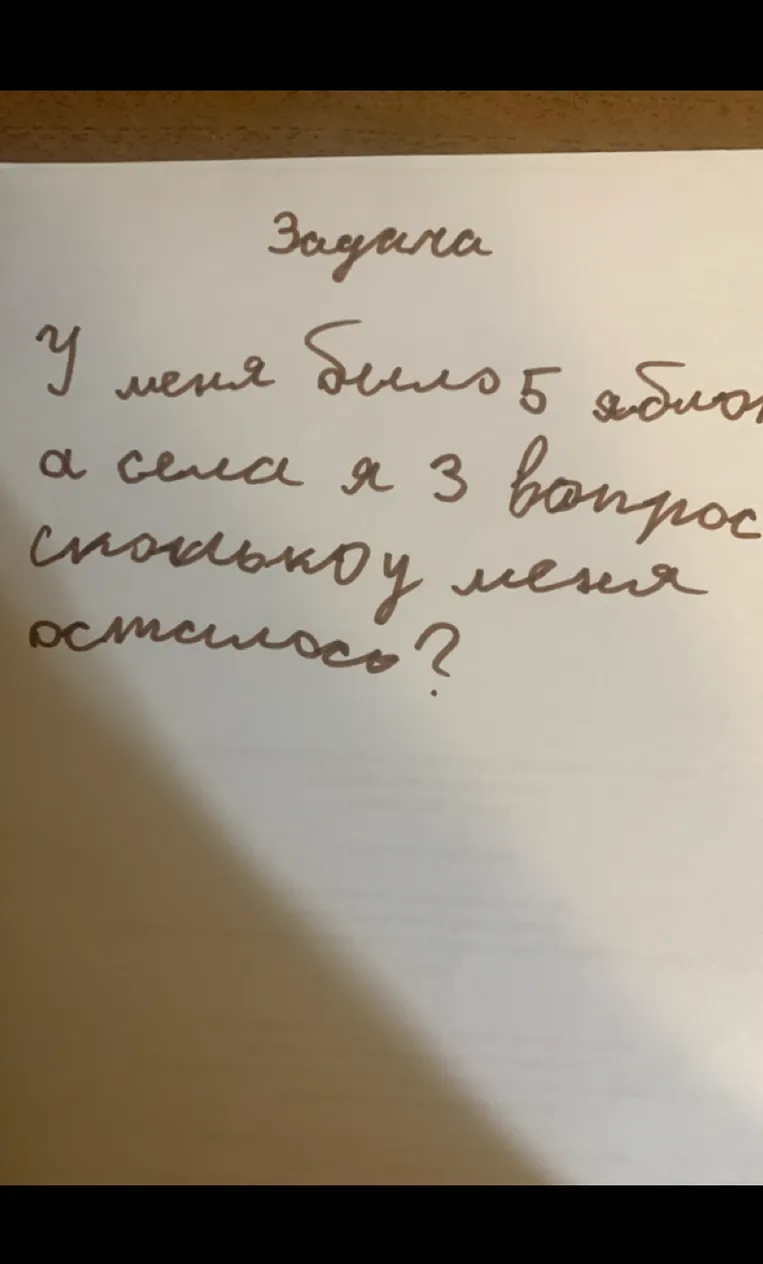 Задача
У меня было 5 яблок
а села я 3 вопрос
сколько у меня
осталось?